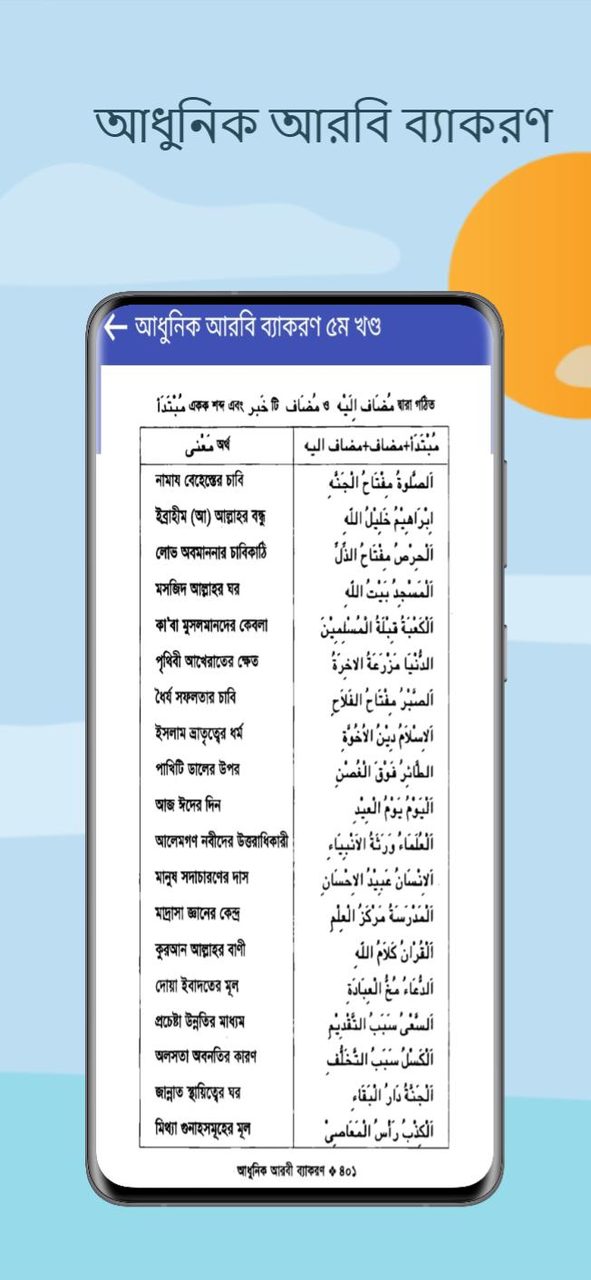 আধুনিক আরবি ব্যাকরণ
আধুনিক আরবি ব্যাকরণ ৫ম খণ্ড
مُبْتَدَأ একক শব্দ এবং خَبر টি مُضَاف ও مُضَاف اِلَيْه দ্বারা গঠিত
مَعْنٰى অর্থ مُبْتَدَأ+مضاف+مضاف اليه
নামায বেহেস্তের চাবি اَلصَّلٰوةُ مِفْتَاحُ الْجَنَّةِ
ইব্রাহীম (আ) আল্লাহর বন্ধু اِبْرَاهِيْمُ خَلِيْلُ اللّٰهِ
লোভ অবমাননার চাবিকাঠি اَلْحِرْصُ مِفْتَاحُ الذُّلِّ
মসজিদ আল্লাহর ঘর اَلْمَسْجِدُ بَيْتُ اللّٰهِ
কা'বা মুসলমানদের কেবলা اَلْكَعْبَةُ قِبْلَةُ الْمُسْلِمِيْنَ
পৃথিবী আখেরাতের ক্ষেত اَلدُّنْيَا مَزْرَعَةُ الاٰخِرَةُ
ধৈর্য সফলতার চাবি اَلصَّبْرُ مِفْتَاحُ الْفَلَاحِ
ইসলাম ভ্রাতৃত্বের ধর্ম اَلاِسْلَامُ دِيْنُ الْاُخُوَّةِ
পাখিটি ডালের উপর اَلطَّائِرُ فَوْقَ الْغُصْنِ
আজ ঈদের দিন اَلْيَوْمُ يَوْمُ الْعِيْدِ
আলেমগণ নবীদের উত্তরাধিকারী اَلْعُلَمَاءُ وَرَثَةُ الْاَنْبِيَاءِ
মানুষ সদাচারণের দাস اَلاِنْسَانُ عَبِيْدُ الاِحْسَانِ
মাদ্রাসা জ্ঞানের কেন্দ্র اَلْمَدْرَسَةُ مَرْكَزُ الْعِلْمِ
কুরআন আল্লাহর বাণী اَلْقُرْاٰنُ كَلَامُ اللّٰهِ
দোয়া ইবাদতের মূল اَلدُّعَاءُ مُخُّ الْعِبَادَةِ
প্রচেষ্টা উন্নতির মাধ্যম اَلسَّعْىُ سَبَبُ التَّقْدِيْمِ
অলসতা অবনতির কারণ اَلْكَسْلُ سَبَبُ التَّخَلُّفِ
জান্নাত স্থায়িত্বের ঘর اَلْجَنَّةُ دَارُ الْبَقَاءِ
মিথ্যা গুনাহসমূহের মূল اَلْكِذْبُ رَأْسُ الْمَعَاصِيْ
আধুনিক আরবী ব্যাকরণ ❖ ৪০১